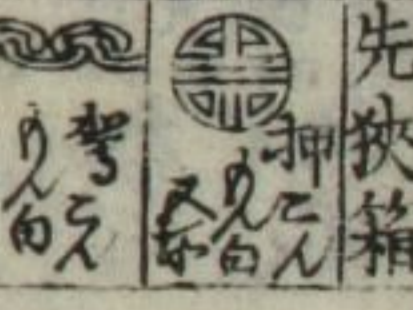 先狭箱
押こん
もん白
又
駕こん
もん白